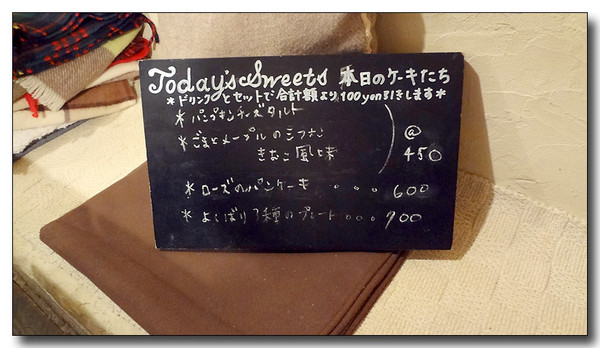 Today's Sweets 本日のケーキたち
*ドリンクとセットで合計額より100yen引きします*
*パンプキンチーズタルト
*ごまとメープルのシフォン
きなこ風味
@
450
*ローズのパンケーキ 。。。 600
*よくばり3種のプレート 。。。 900